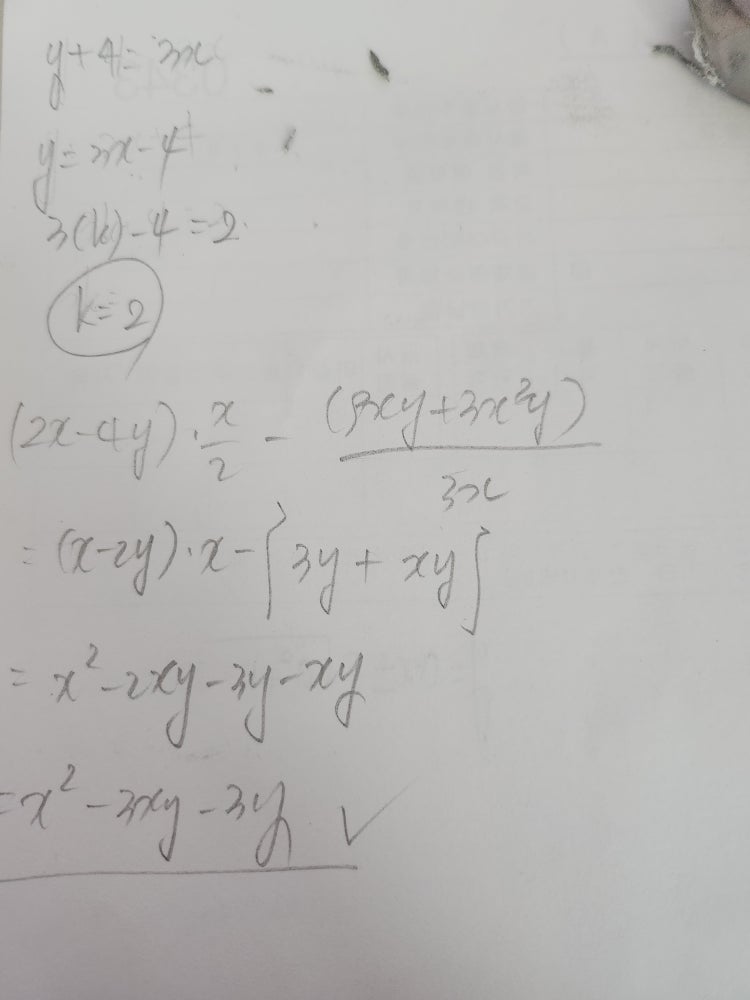 y+4=3x
y=3x-4
3(k)-4=2
k=2
(2x-4y)·x/2 - (9xy+3x²y)/3x
=(x-2y)·x-[3y+xy]
=x²-2xy-3y-xy
=x²-3xy-3y ✓